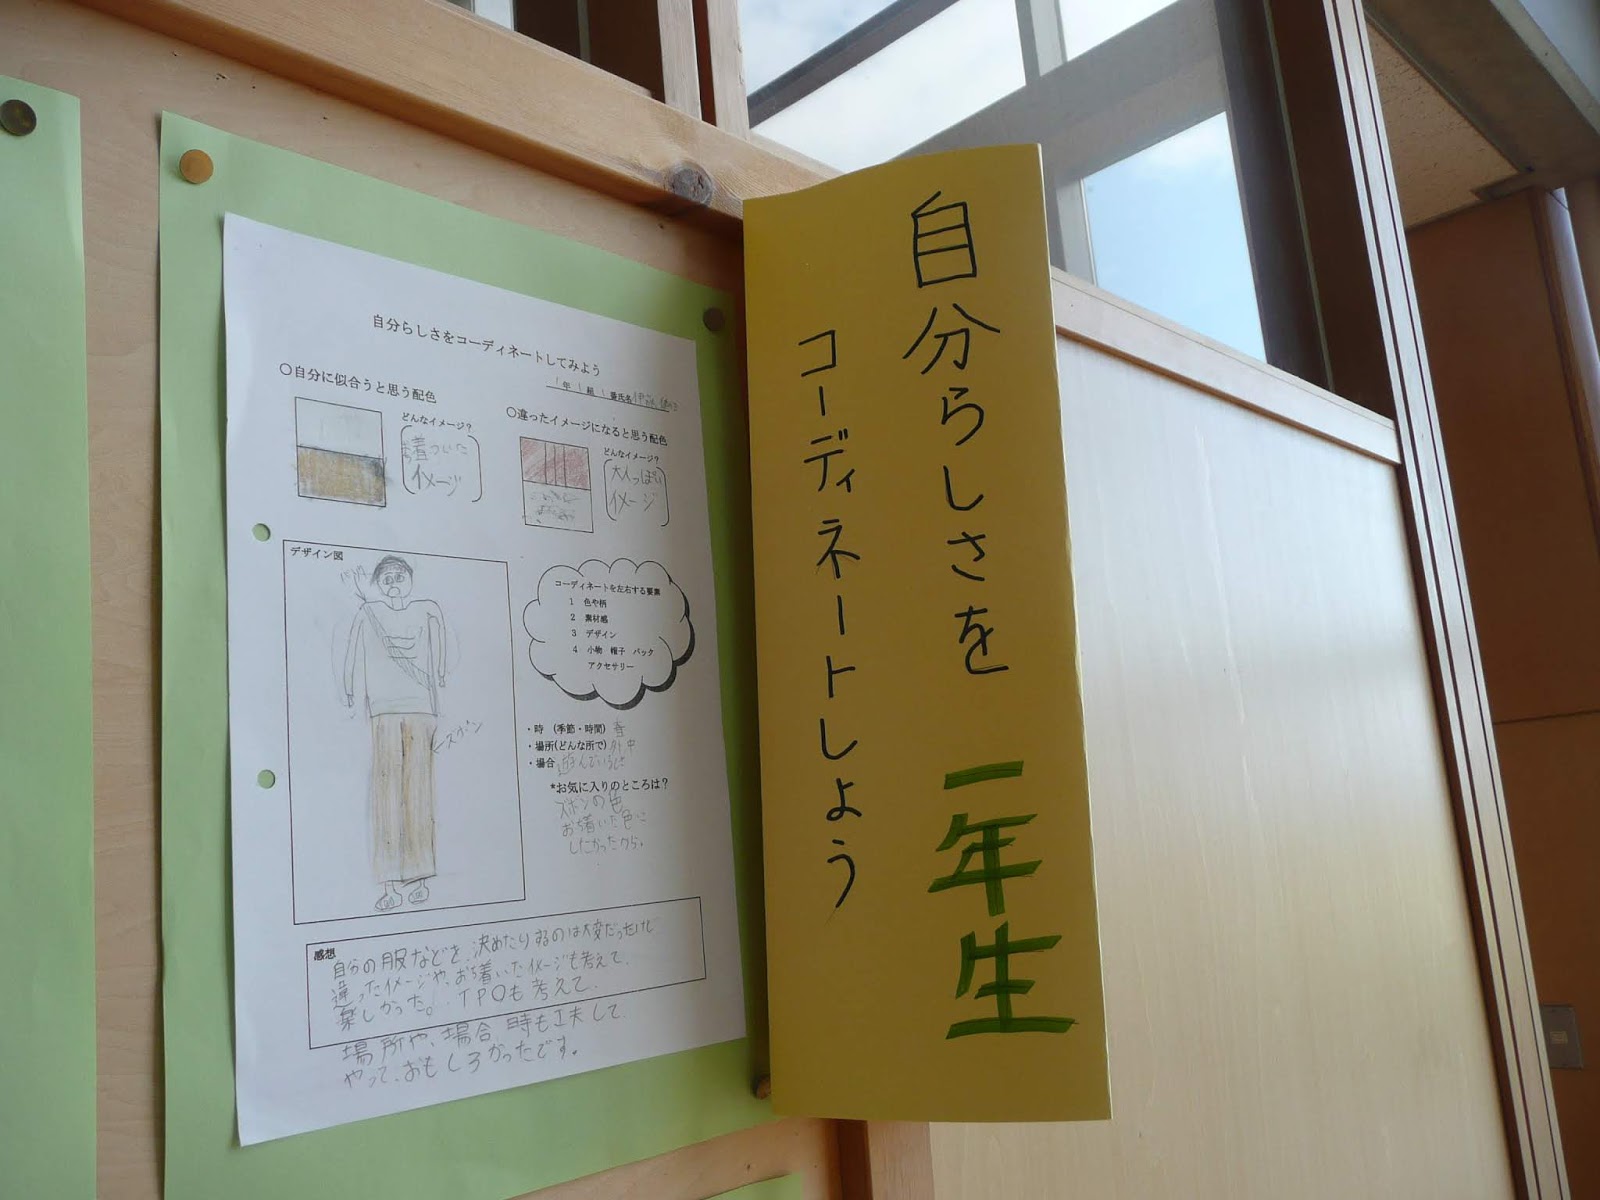 自分らしさをコーディネートしてみよう
1年 1組 1番氏名
○自分に似合うと思う配色
どんなイメージ?
お着ついた
イメージ
○違ったイメージになると思う配色
どんなイメージ?
大人っぽい
イメージ
デザイン図
←ズボン
コーディネートを左右する要素
1 色や柄
2 素材感
3 デザイン
4 小物 帽子 バック
アクセサリー
・時 (季節・時間) 春
・場所(どんな所で) 外 中
・場合 遊んでいるとき
*お気に入りのところは?
ズボンの色
おち着いた色に
したかったから。
感想
自分の服などを、決めたりするのは大変だったけど
違ったイメージや、おち着いたイメージも考えて、
楽しかった。TPOも考えて、
場所や、場合、時も工夫して、
やって、おもしろかったです。
自分らしさを 一年生
コーディネートしよう